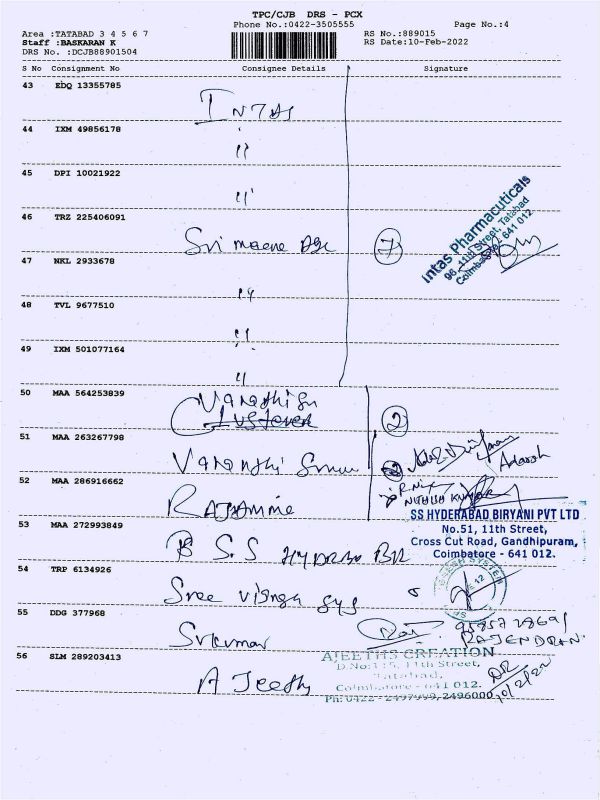 TPC/CJB DRS - PCX
Phone No.:0422-3505555
Page No.:4
Area :TATABAD 3 4 5 6 7
Staff :BASKARAN K
DRS No. :DCJB88901504
RS No.:889015
RS Date:10-Feb-2022
S No Consignment No Consignee Details Signature
43 EDQ 13355785
INTAS
44 IXM 49856178
"
45 DPI 10021922
"
46 TRZ 225406091
Sri
7
Intas Pharmaceuticals
96, 11th Street, Tatabad
Coimbatore - 641 012.
47 NKL 2933678
"
48 TVL 9677510
"
49 IXM 501077164
"
50 MAA 564253839
2
51 MAA 263267798
Vanathi
Adarsh
52 MAA 286916662
53 MAA 272993849
S.S HYDRA BR
SS HYDERABAD BIRYANI PVT LTD
No.51, 11th Street,
Cross Cut Road, Gandhipuram,
Coimbatore - 641 012.
54 TRP 6134926
Sree Vishnu Sys
55 DDG 377968
Srikumar
RAJENDRAN.
56 SLM 289203413
A Jeeths
AJEETHS CREATION
D.No:115, 11th Street,
Tatabad,
Coimbatore - 641 012.
Ph: 0422 - 2497999, 2496000
10/2/22